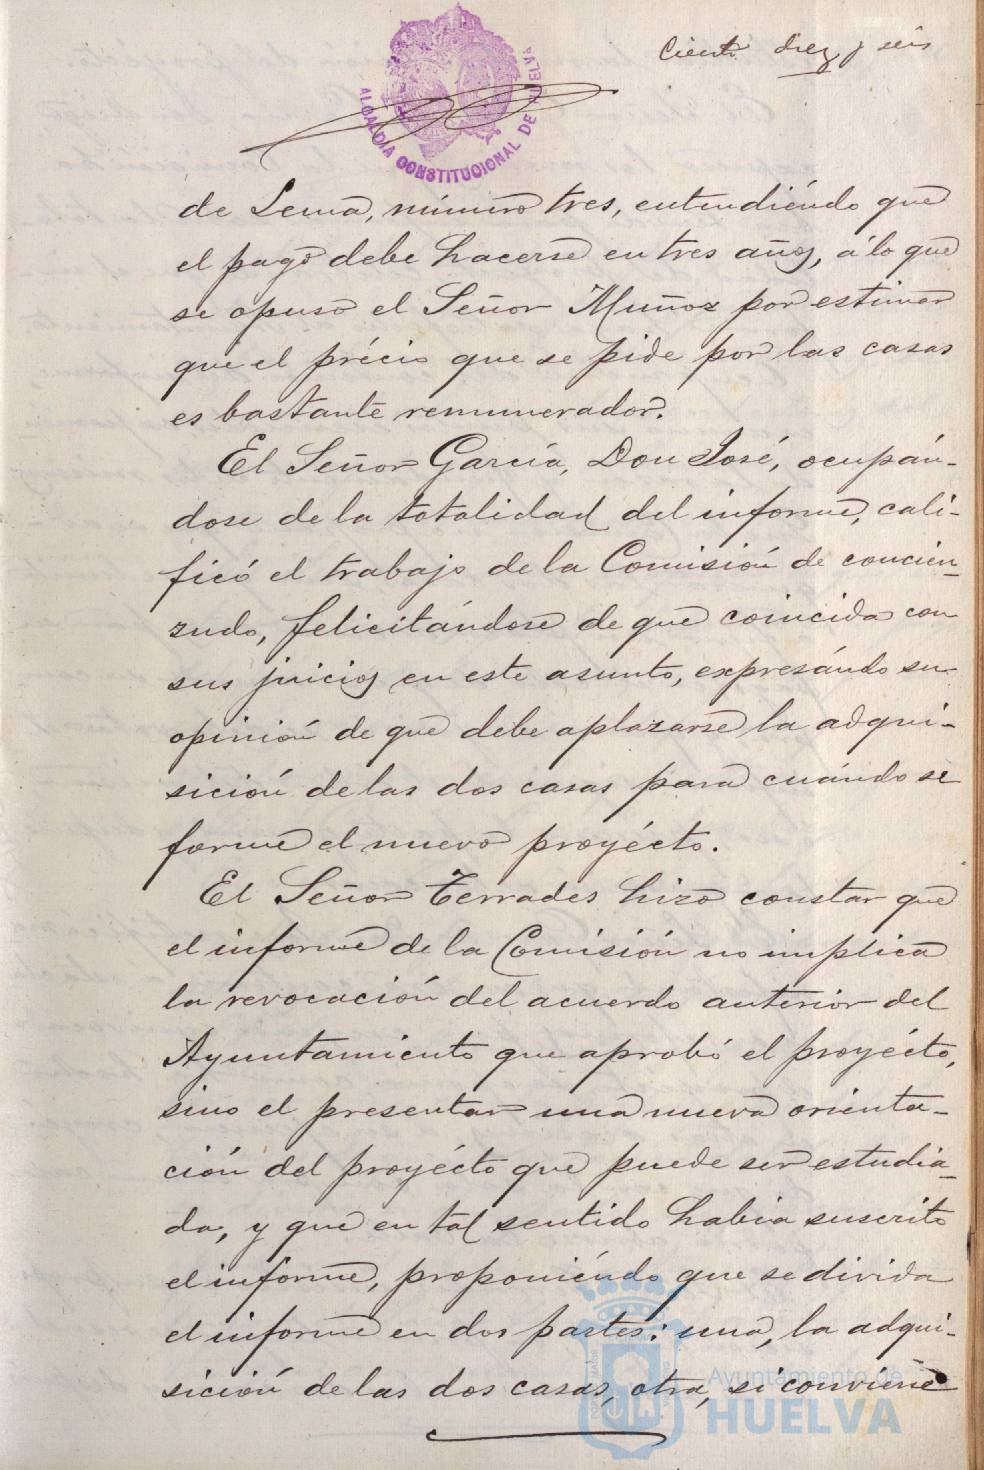 Ciento diez y seis
ALCALDIA CONSTITUCIONAL DE HUELVA
de Lema, número tres, entendiéndo que
el pago debe hacerse en tres años, á lo que
se opuso el Señor Muñoz por estimar
que el précio que se pide por las casas
es bastante remunerador.
El Señor García, Don José, ocupán-
dose de la totalidad del informe, cali-
ficó el trabajo de la Comisión de concien-
zudo, felicitándose de que coincida con
sus juicios en este asunto, expresándo su
opinión de que debe aplazarse la adqui-
sición de las dos casas para cuándo se
forme el nuevo proyécto.
El Señor Terrades hizo constar que
el informe de la Comisión no implica
la revocación del acuerdo anterior del
Ayuntamiento que aprobó el proyécto,
sino el presentar una nueva orienta-
ción del proyécto que puede ser estudia-
da, y que en tal sentido habia suscrito
el informe, proponiéndo que se divida
el informe en dos partes: una, la adqui-
sición de las dos casas, otra, si conviene
Ayuntamiento de
HUELVA